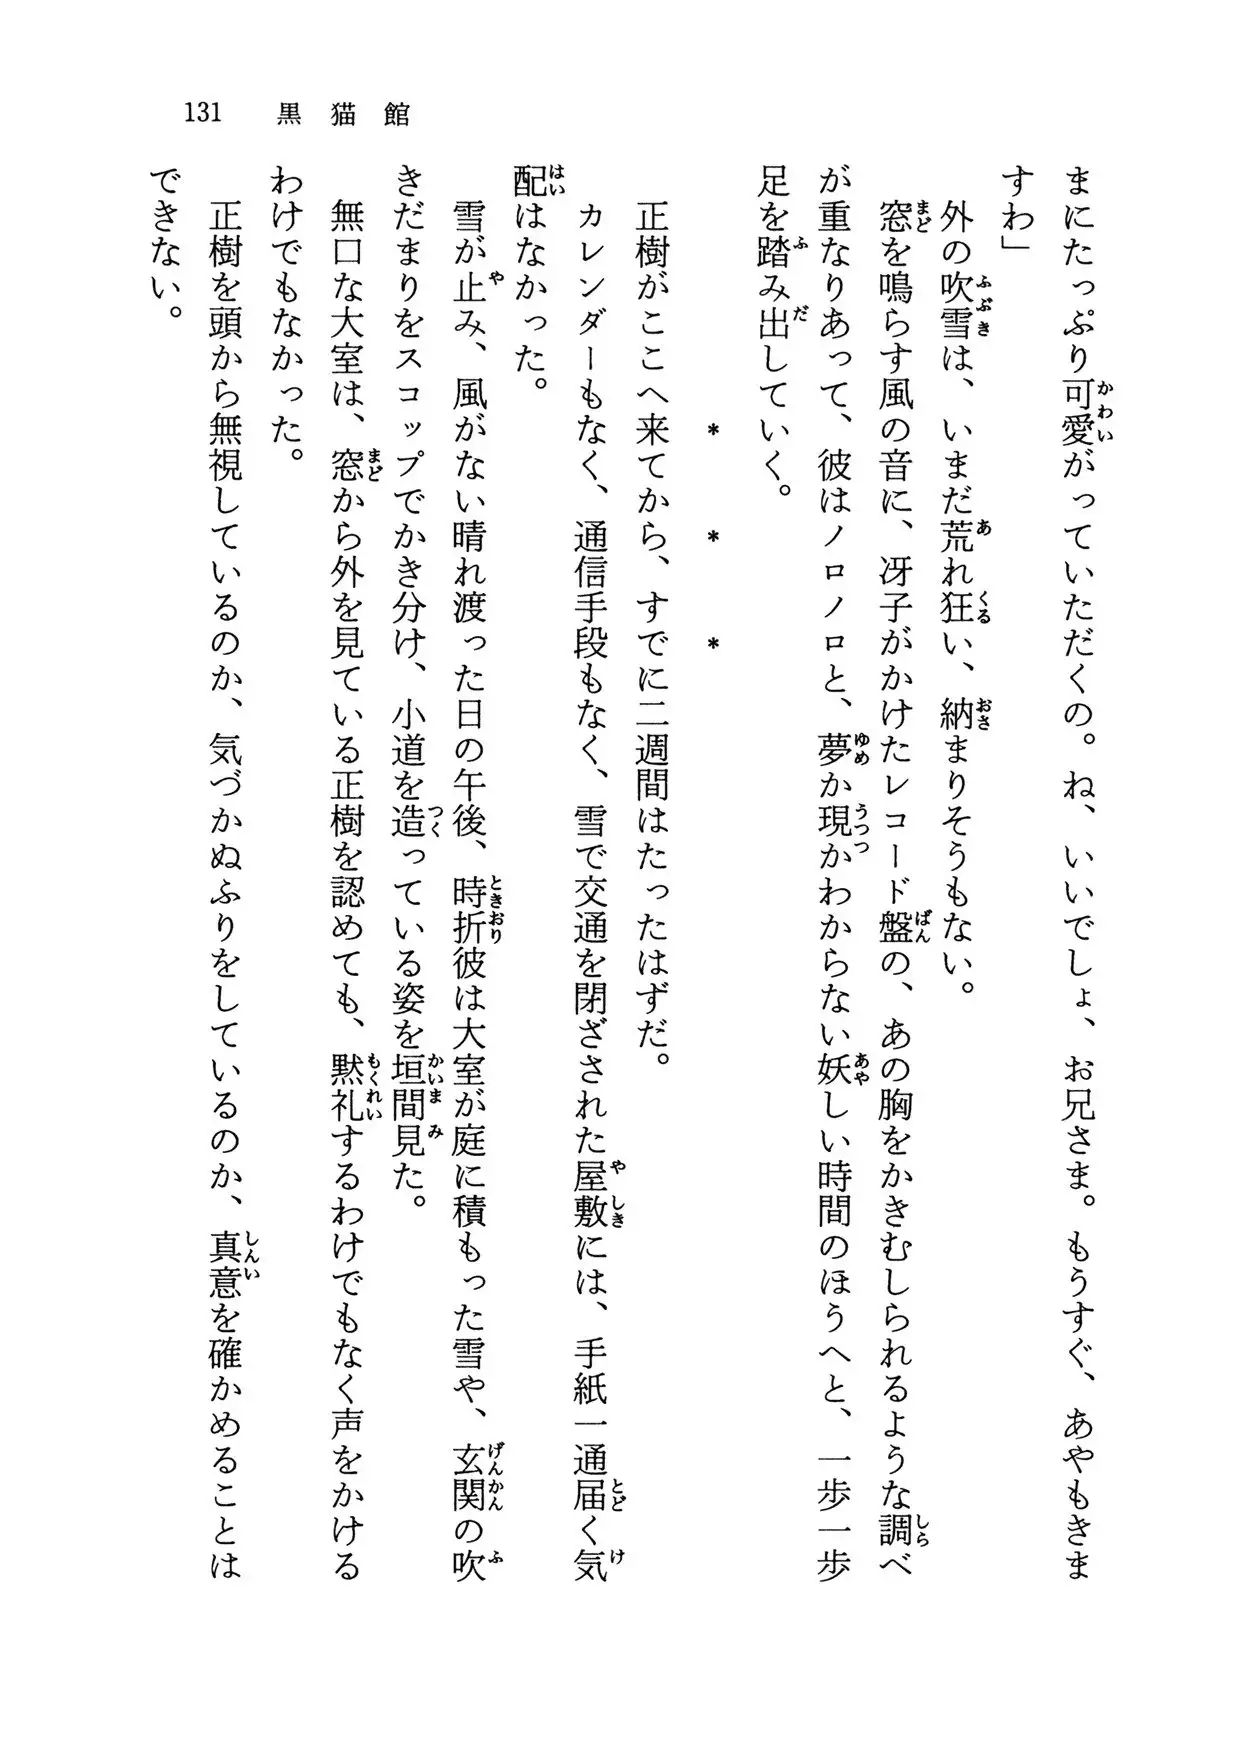 131 黒猫館
まにたっぷり可愛がっていただくの。ね、いいでしょ、お兄さま。もうすぐ、あやもきま
すわ」
外の吹雪は、いまだ荒れ狂い、納まりそうもない。
窓を鳴らす風の音に、冴子がかけたレコード盤の、あの胸をかきむしられるような調べ
が重なりあって、彼はノロノロと、夢か現かわからない妖しい時間のほうへと、一歩一歩
足を踏み出していく。
＊　＊　＊
正樹がここへ来てから、すでに二週間はたったはずだ。
カレンダーもなく、通信手段もなく、雪で交通を閉ざされた屋敷には、手紙一通届く気
配はなかった。
雪が止み、風がない晴れ渡った日の午後、時折彼は大室が庭に積もった雪や、玄関の吹
きだまりをスコップでかき分け、小道を造っている姿を垣間見た。
無口な大室は、窓から外を見ている正樹を認めても、黙礼するわけでもなく声をかける
わけでもなかった。
正樹を頭から無視しているのか、気づかぬふりをしているのか、真意を確かめることは
できない。